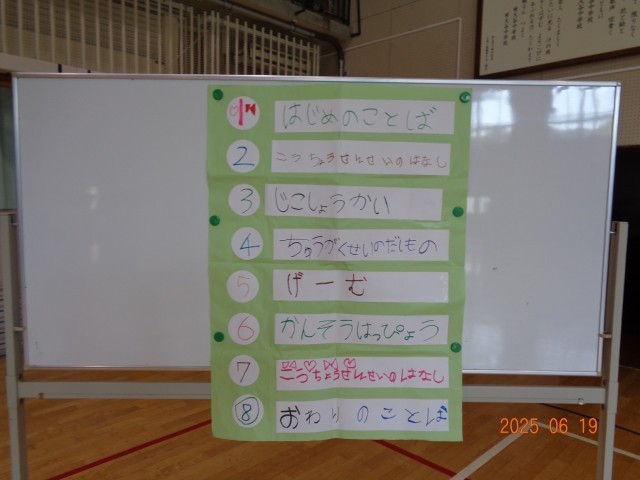 1 はじめのことば
2 こうちょうせんせいのはなし
3 じこしょうかい
4 ちゅうがくせいのだしもの
5 げーむ
6 かんそうはっぴょう
7 こうちょうせんせいのはなし
8 おわりのことば
2025 06 19